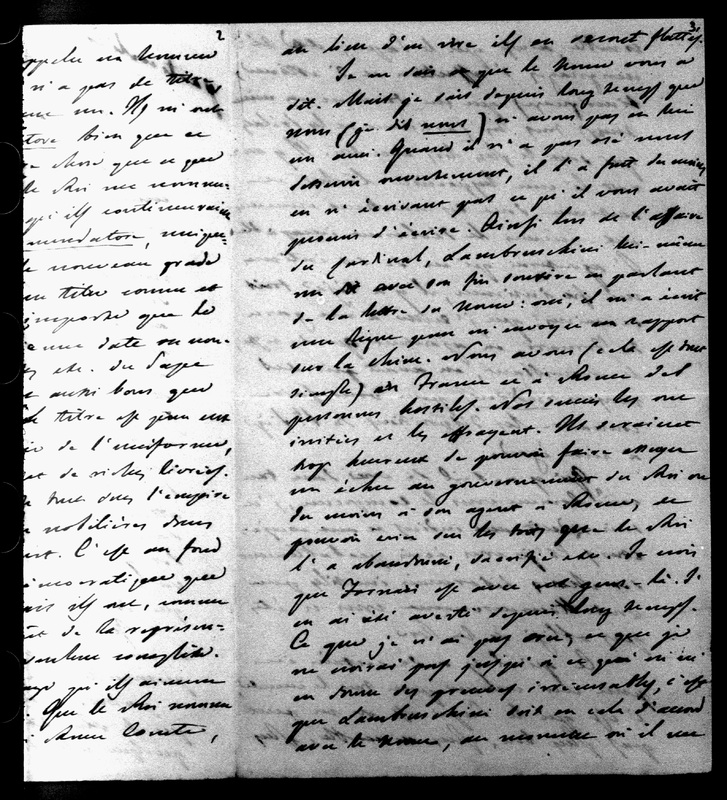 2
appelle un homme
n'a pas de titre
un. Ils m'ont
bien que ce
chose que ce que
le Roi me nomm-
qu'ils continueraient
mendatore, uniqu-
le nouveau grade
un titre comme et
importe que le
une date ou non-
etc. du Pape
aussi bons que
titre est peu
de l'uniforme,
et de riches livrées.
tout dans l'empire
nobilières dans
C'est au fond
démocratique que
mais ils ont, comme
et de la représen-
complète.
qu'ils aiment
Que le Roi nomme
Comte,
3
au lieu d'en rire ils en seront flattés.
Je ne sais ce que le Nonce vous a
dit. Mais je sais depuis long temps que
nous (je dis nous) n'avons pas en lui
un ami. Quand il n'a pas osé nous
desservir ouvertement, il l'a fait du moins
en n'écrivant pas ce qu'il vous avait
promis d'écrire. Ainsi lors de l'affaire
du Cardinal, Lambruschini lui-même
me dit avec son fin sourire en parlant
de la lettre du Nonce: oui, il m'a écrit
une ligne pour m'envoyer un rapport
sur la Chine. Nous avons (cela est tout
simple) en France et à Rome des
personnes hostiles. Nos succès les ont
irritées et les effrayent. Ils seraient
trop heureux de pouvoir faire essuyer
un échec au gouvernement du Roi ou
du moins à son agent à Rome, et
pouvoir crier sur les toits que le Roi
l'a abandonné, sacrifié etc. Je crois
que Fornari est avec ces gens-là. J'
en ai été averti depuis long temps.
Ce que je n'ai pas cru, ce que je
ne croirai pas jusqu'à ce qu'on m'
en donne des preuves irrécusables, c'est
que Lambruschini soit en cela d'accord
avec le Nonce, au moment où il me